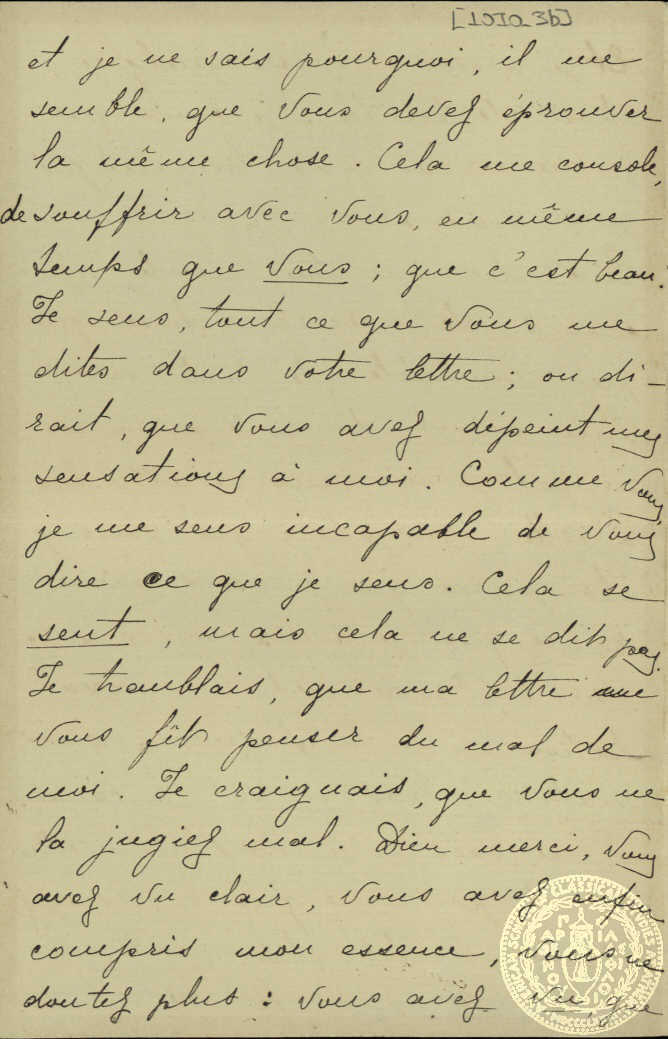 [1010_3b]
et je ne sais pourquoi, il me
semble, que Vous devez éprouver
la même chose. Cela me console,
de souffrir avec Vous, en même
temps que Vous; que c'est beau.
Je sens, tout ce que Vous me
dites dans Votre lettre; on di-
rait, que Vous avez dépeint mes
sensations à moi. Comme Vous
je me sens incapable de Vous
dire ce que je sens. Cela se
sent, mais cela ne se dit pas.
Je tremblais, que ma lettre ne
Vous fît penser du mal de
moi. Je craignais, que Vous ne
la jugiez mal. Dieu merci, Vous
avez vu clair, Vous avez enfin
compris mon essence, Vous ne
doutez plus: Vous avez vu, que